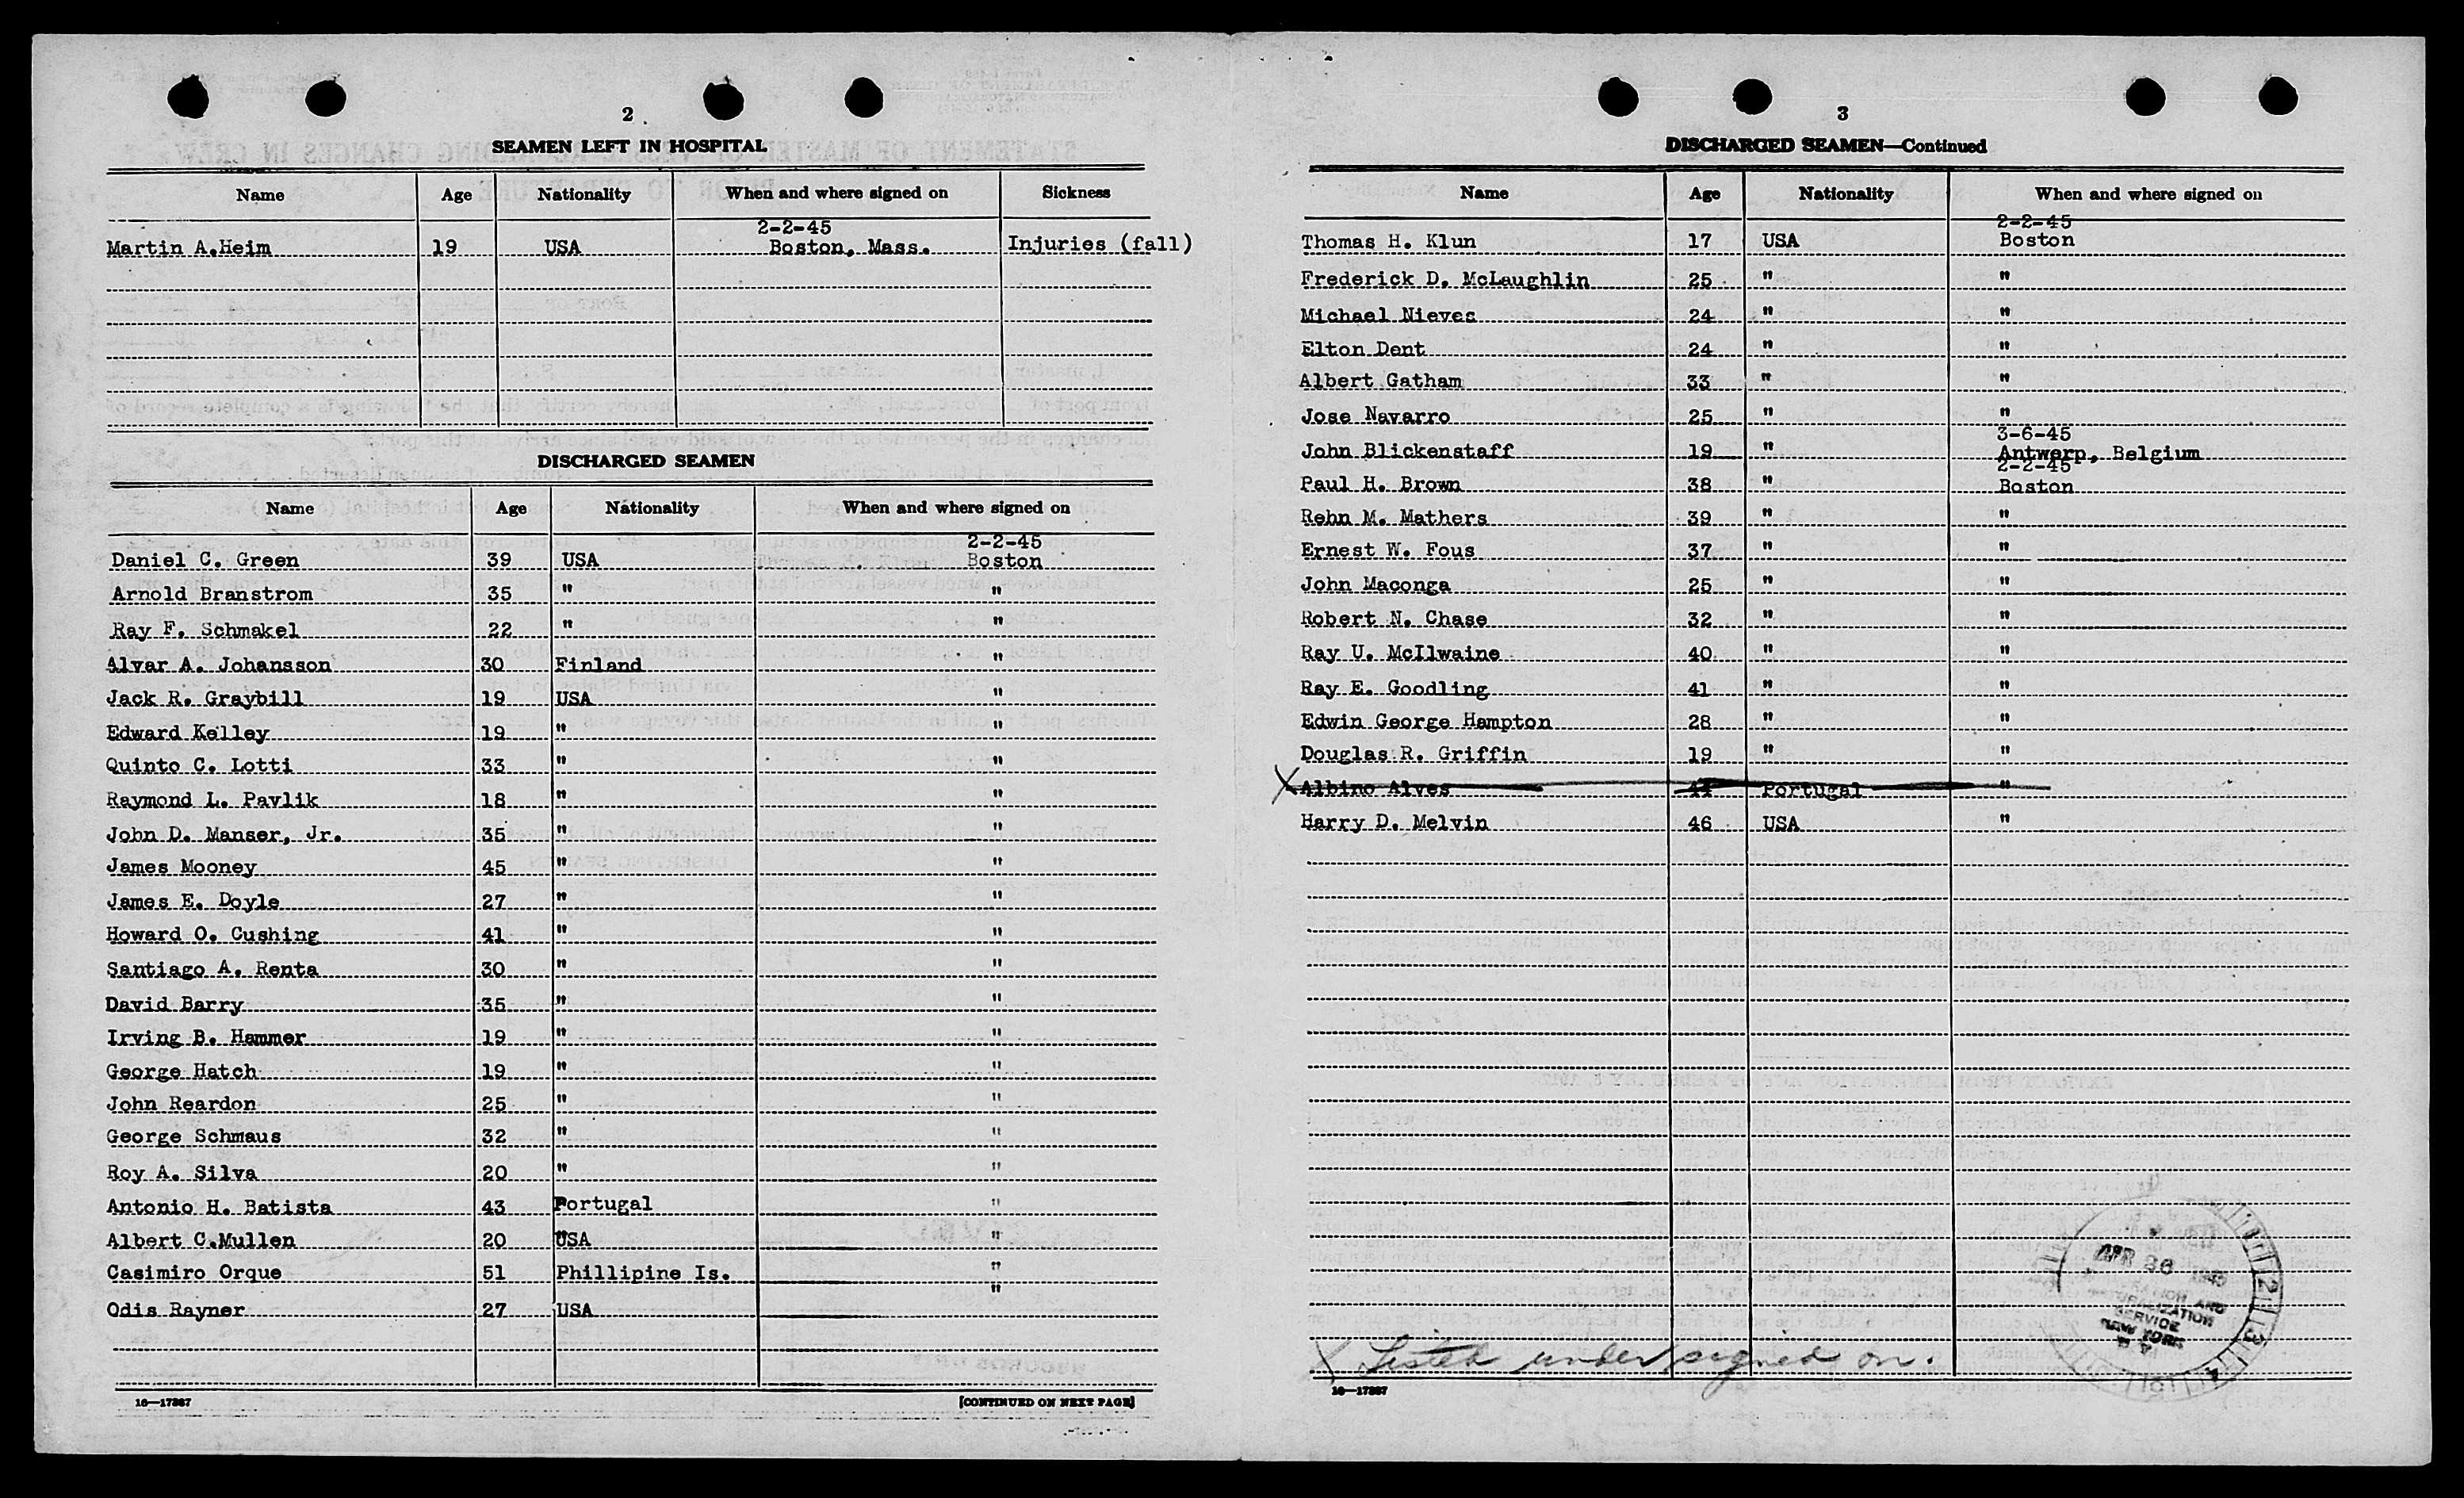 2
SEAMEN LEFT IN HOSPITAL
Name Age Nationality When and where signed on Sickness
2-2-45
Martin A.Heim 19 USA Boston, Mass. Injuries (fall)
DISCHARGED SEAMEN
Name Age Nationality When and where signed on
2-2-45
Daniel C. Green 39 USA Boston
Arnold Branstrom 35 " "
Ray F. Schmakel 22 " "
Alvar A. Johansson 30 Finland "
Jack R. Graybill 19 USA "
Edward Kelley 19 " "
Quinto C. Lotti 33 " "
Raymond L. Pavlik 18 " "
John D. Manser, Jr. 35 " "
James Mooney 45 " "
James E. Doyle 27 " "
Howard O. Cushing 41 " "
Santiago A. Renta 30 " "
David Barry 35 " "
Irving B. Hammer 19 " "
George Hatch 19 " "
John Reardon 25 " "
George Schmaus 32 " "
Roy A. Silva 20 " "
Antonio H. Batista 43 Portugal "
Albert C.Mullen 20 USA "
Casimiro Orque 51 Phillipine Is. "
Odis Rayner 27 USA "
16—17387 [CONTINUED ON NEXT PAGE]
3
DISCHARGED SEAMEN—Continued
Name Age Nationality When and where signed on
2-2-45
Thomas H. Klun 17 USA Boston
Frederick D. McLaughlin 25 " "
Michael Nieves 24 " "
Elton Dent 24 " "
Albert Gatham 33 " "
Jose Navarro 25 " "
3-6-45
John Blickenstaff 19 " Antwerp, Belgium
2-2-45
Paul H. Brown 38 " Boston
Rehn M. Mathers 39 " "
Ernest W. Fous 37 " "
John Maconga 25 " "
Robert N. Chase 32 " "
Ray U. McIlwaine 40 " "
Ray E. Goodling 41 " "
Edwin George Hampton 28 " "
Douglas R. Griffin 19 " "
X Albino Alves 44 Portugal "
Harry D. Melvin 46 USA "
X Listed under signed on.
16—17387
APR 26 1945
AND
NEW YORK